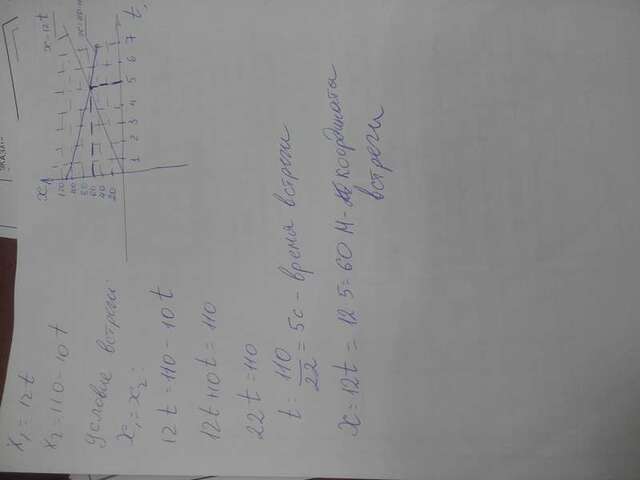 x₁ = 12t
x₂ = 110 - 10t
Условие встречи:
x₁ = x₂:
12t = 110 - 10t
12t + 10t = 110
22t = 110
t = 110/22 = 5c - время встречи
x = 12t = 12 5 = 60 м - координаты встречи
x = 12t
x
120
100
80
60
40
20
1 2 3 4 5 6 7 t,